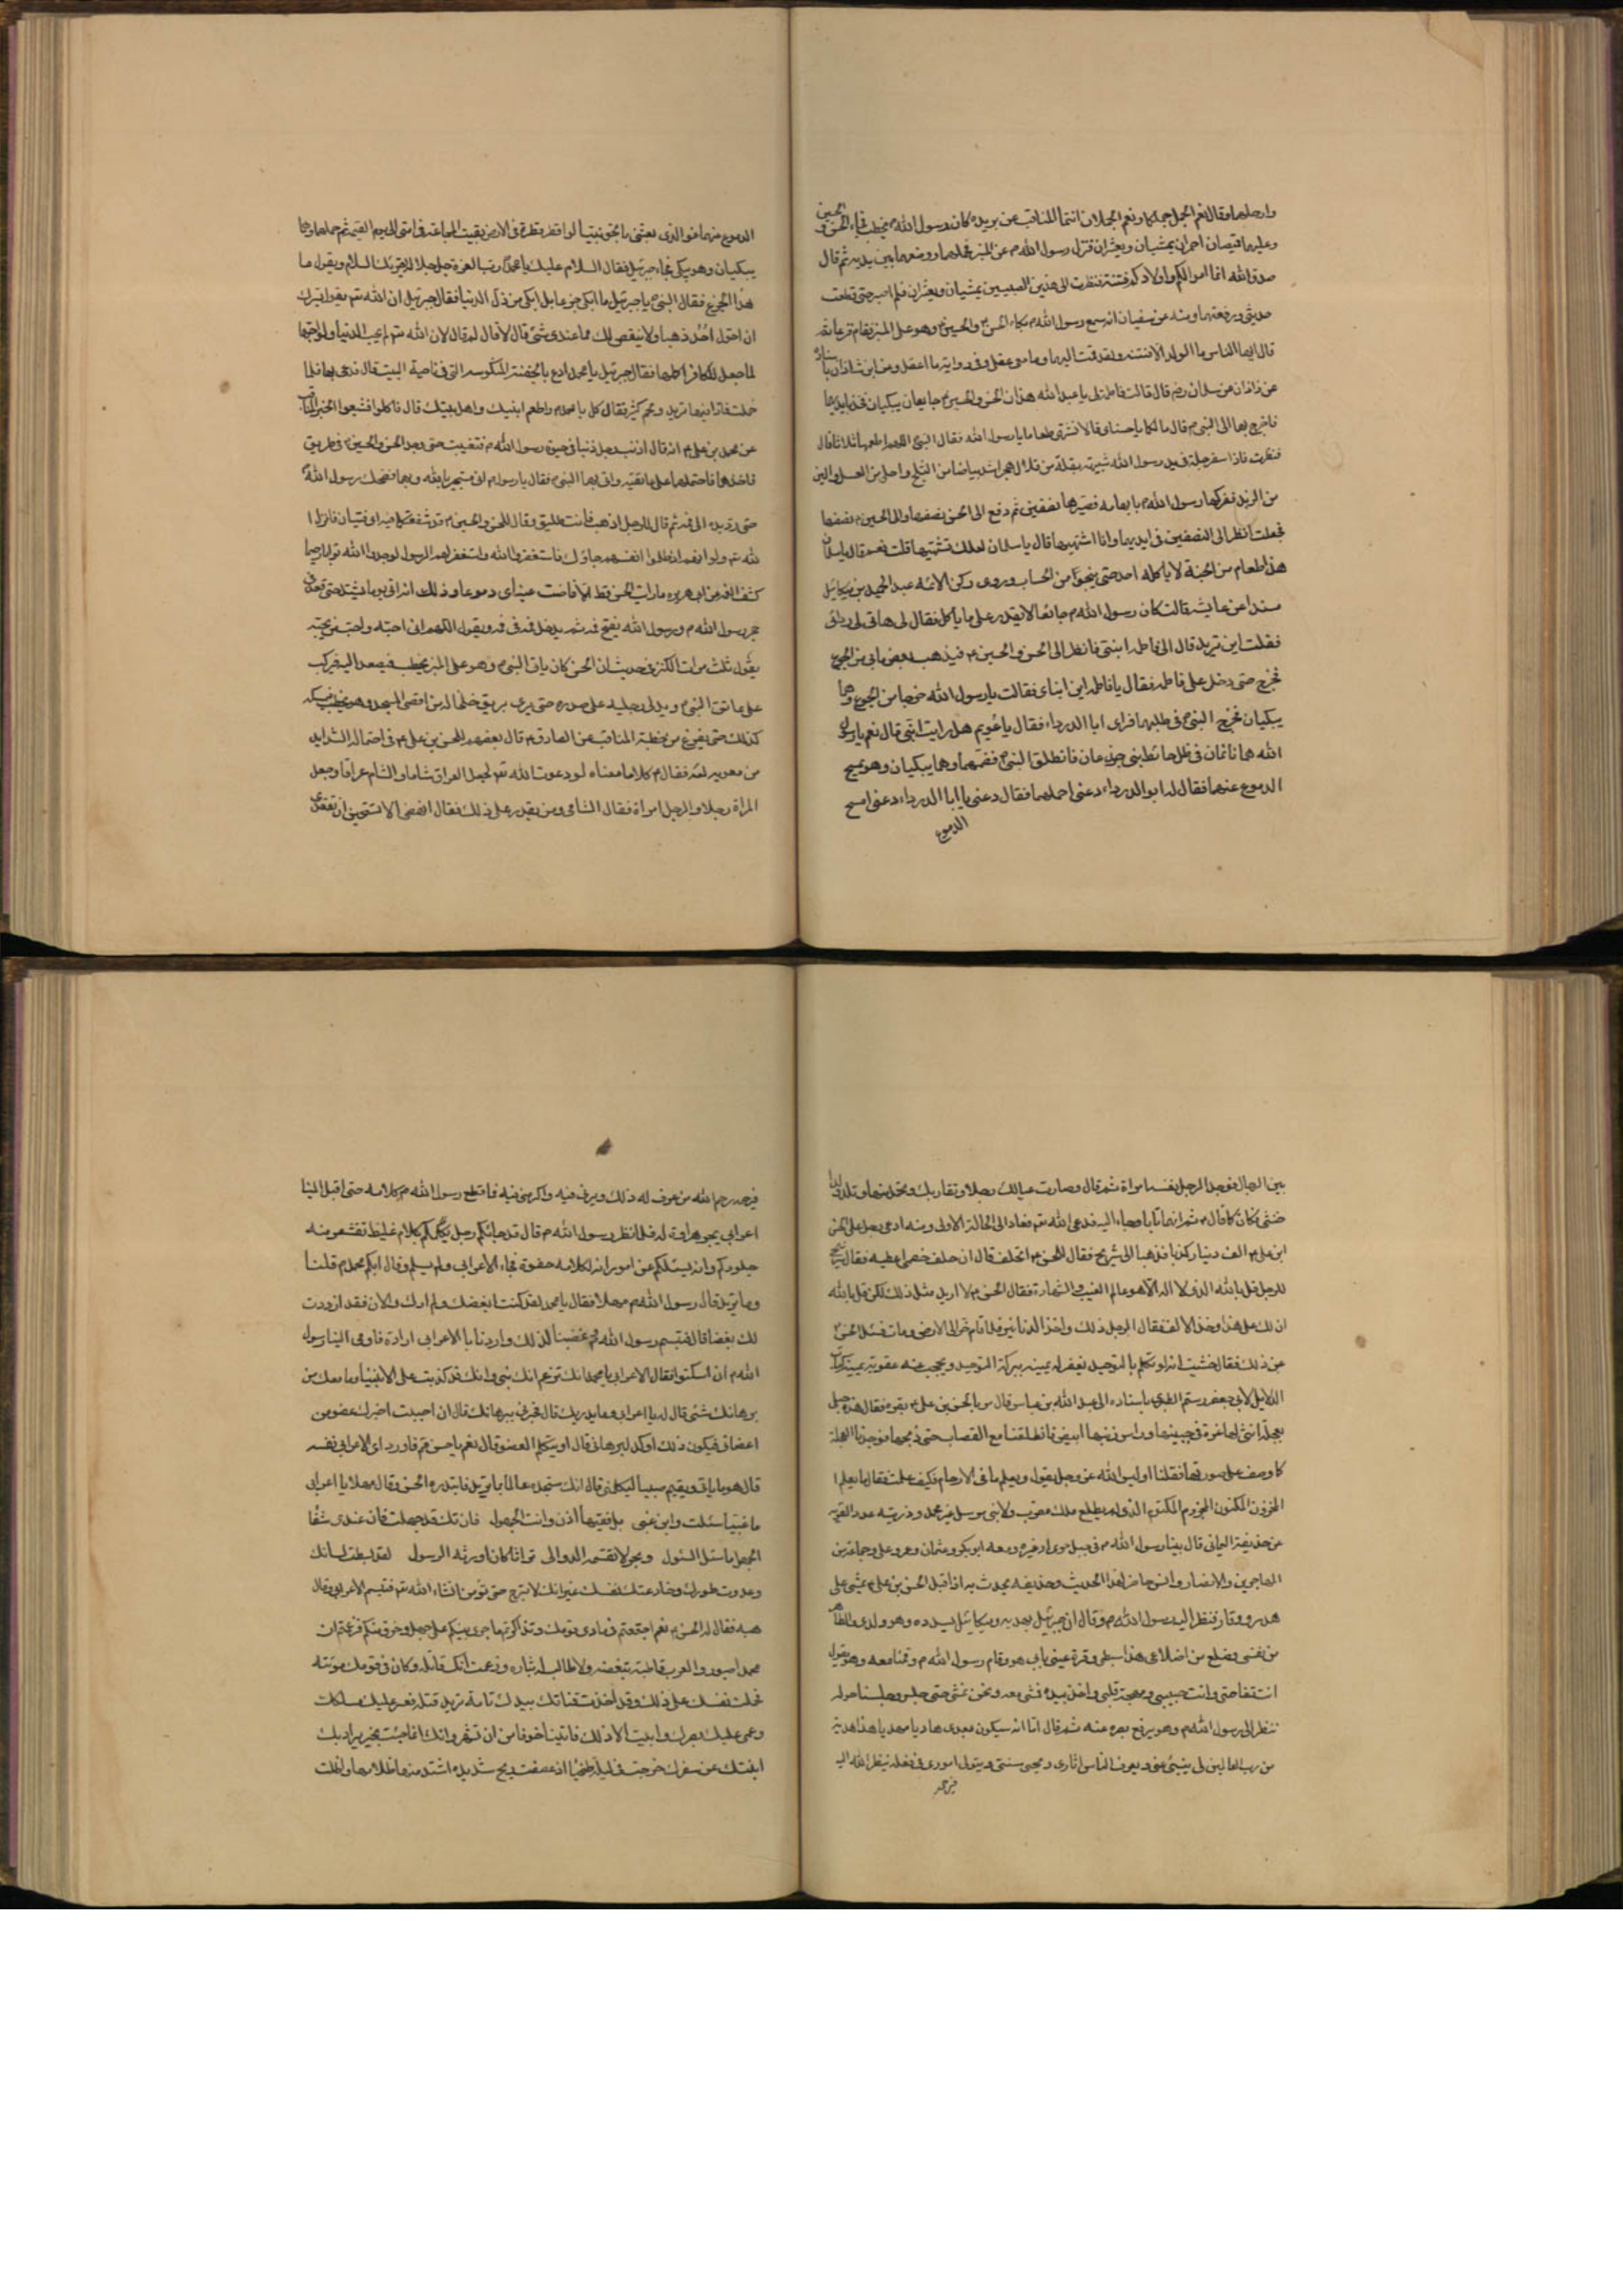 وارجلهما وقال نعم الجمل جملكما ونعم الحملان انتما المناقب عن بريده كان رسول الله ص يخطب فجاء الحسن والحسين
وعليهما قميصان احمران يمشيان ويعثران فنزل رسول الله ص عن المنبر فحملهما ووضعهما بين يديه ثم قال
صدق الله انما اموالكم واولادكم فتنة فنظرت الى هذين الصبيين يمشيان ويعثران فلم اصبر حتى قطعت
حديثي ورفعتهما ومنه عن سفيان انه سمع رسول الله ص بكاء الحسن والحسين وهو على المنبر فقام فزعا ثم
قال ايها الناس ما الولد الا فتنة ولقد قمت اليهما وما معي عقلي وفي رواية ما اعقل وعن ابن شاذان باسناده
عن زاذان عن سلمان رضى قال قالت فاطمة يا عبد الله هذان الحسن والحسين جايعان يبكيان فخذ بايديهما
فاخرج بهما الى النبي ص قال ما لكما يا حسناي قالا نشتهي طعاما يا رسول الله فقال النبي اللهم اطعمهما ثلاثا قال
فنظرت فاذا سفرجلة في يد رسول الله شبيهة بقلة من قلال هجر اشد بياضا من الثلج واحلى من العسل والين
من الزبد ففركها رسول الله ص بابهامه فصيرها نصفين ثم دفع الى الحسن نصفها والى الحسين نصفها
فجعلت انظر الى النصفين في ايديهما وانا اشتهيها قال يا سلمان لعلك تشتهيها قلت نعم قال يا سلمان
هذا طعام من الجنة لا ياكله احد حتى ينجو من الحساب وروى ركن الائمه عبد الحميد بن ميكائيل
مسندا عن عايشه قالت كان رسول الله ص جائعا لا يقدر على ما ياكل فقال لي هاتي لي ردائي
فقلت اين تريد قال الى فاطمه ابنتي فانظر الى الحسن والحسين فيذهب بعض ما بي من الجوع
فخرج حتى دخل على فاطمه فقال يا فاطمه اين ابناي فقالت يا رسول الله خرجا من الجوع وهما
يبكيان فخرج النبي في طلبهما فراى ابا الدرداء فقال يا عويم هل رايت ابني قال نعم يا رسول
الله هما نائمان في ظل حائط بني جدعان فانطلق النبي فضمهما وهما يبكيان وهو يمسح
الدموع عنهما فقال له ابو الدرداء دعني احملهما فقال دعني يا ابا الدرداء دعني امسح
الدموع
الدموع عنهما فو الذي بعثني بالحق نبيا لو قطر قطرة في الارض لبقيت المجاعة في امتي الى يوم القيمة ثم حملهما وهما
يبكيان وهو يبكي فجاء جبرئيل فقال السلام عليك يا محمد رب العزة جل جلاله يقرئك السلام ويقول ما
هذا الجزع فقال النبي يا جبرئيل ما ابكي جزعا بل ابكي من ذل الدنيا فقال جبرئيل ان الله تع يقول ايسرك
ان احول احد ذهبا ولا ينقص لك مما عندي شئ قال لا قال لم قال لان الله تع لم يحب الدنيا ولو احبها
لما جعل للكافر اكلها فقال جبرئيل يا محمد ادع بالجفنة المنكوسه التي في ناحية البيت قال فدعى بها فلما
حملت فاذا فيها ثريد ولحم كثير فقال كل يا محمد واطعم ابنيك واهل بيتك قال فاكلوا فشبعوا الخبر المناقب
عن محمد بن علي ع انه قال اذنب رجل ذنبا في حيوة رسول الله ص فتغيب حتى وجد الحسن والحسين في طريق
فاخذهما فاحتملهما على عاتقيه واتى بهما النبي فقال يا رسول الله اني مستجير بالله وبهما فضحك رسول الله
حتى رد يده الى فمه ثم قال للرجل اذهب فانت طليق وقال للحسن والحسين قد شفعتكما فيه اي فتيان فانزل ا
لله تع ولو انهم اذ ظلموا انفسهم جاؤك فاستغفروا الله واستغفر لهم الرسول لوجدوا الله توابا رحيما
كشف الغمه عن ابي هريره ما رايت الحسن قط الا فاضت عيناي دموعا وذلك انه اتى يوما يشتد حتى قعد في
حجر رسول الله ص ورسول الله يفتح فمه ثم يدخل فمه في فمه ويقول اللهم اني احبه واحب من يحبه
يقول ثلث مرات الكنز في حديث ان الحسن كان ياتي النبي ص وهو على المنبر يخطب فيصعد اليه فيركب
على عاتق النبي ويدلي رجليه على صدره حتى يرى بريق خلخاله من اقصى المسجد وهو يخطب فيمسكه
كذلك حتى يفرغ من خطبته المناقب عن الصادق ع قال بعضهم للحسن بن علي ع في احتماله الشدايد
من معويه لعنه فقال ع كلاما معناه لو دعوت الله تع لجعل العراق شاما والشام عراقا وجعل
المراة رجلا والرجل امراة فقال الشامي ومن يقدر على ذلك فقال انهضي الا تستحين ان تقعدي
بين الرجال فوجد الرجل نفسه امراة ثم قال وصارت عيالك رجلا وتقاربك وتحمل منها وتلد ولدا
خنثى فكان كما قال ع ثم انهما تابا وجاءا اليه فدعى الله تع فعادا الى الحالة الاولى ومنه ادعى رجل على الحسن
ابن علي ع الف دينار كذبا فذهبا الى شريح فقال للحسن ع اتحلف قال ان حلف خصمي اعطيه فقال شريح
للرجل قل بالله الذي لا اله الا هو عالم الغيب والشهادة فقال الحسن ع لا اريد مثل ذلك لكن قل بالله
ان لك علي هذا وخذ الالف فقال الرجل ذلك واخذ الدنانير فلما قام خر الى الارض ومات فسئل الحسن
عن ذلك فقال خشيت انه لو تكلم بالتوحيد يغفر له يمينه ببركة التوحيد ويحجب عنه عقوبة يمينه كتاب
الدلايل لابي جعفر رستم الطبري باسناده الى عبد الله بن عباس قال مر بالحسن بن علي ع بقرة فقال هذه حبلى
بعجلة انثى لها غرة في جبينها وراس ذنبها ابيض فانطلقنا مع القصاب حتى ذبحها فوجدنا العجلة
كما وصف على صورتها فقلنا اوليس الله عز وجل يقول ويعلم ما في الارحام فكيف علمت فقال ما يعلم ا
لمخزون المكنون المجزوم المكتوم الذي لم يطلع ملك مقرب ولا نبي مرسل غير محمد وذريته عدد القويه
عن حذيفة اليماني قال بينا رسول الله ص في جبل حرى او غيره ومعه ابو بكر وعثمان وعمر وعلي وجماعة من
المهاجرين والانصار وانس حاضر لهذا الحديث وحذيفه يحدث به اذ اقبل الحسن بن علي ع يمشي على
هدوء ووقار فنظر اليه رسول الله ص وقال ان جبرئيل يهديه وميكائيل يسدده وهو ولدي والطاهر
من نفسي وضلع من اضلاعي هذا سبطي وقرة عيني بابي هو وقام رسول الله ص وقمنا معه وهو يقول
انت تفاحتي وانت حبيبي ومهجة قلبي واخذ بيده فمشى معه ونحن نمشي حتى جلس وجلسنا حوله
ننظر الى رسول الله ص وهو يرفع بصره عنه ثم قال اما انه سيكون بعدي هاديا مهديا هذا هدية
من رب العالمين لي ينبئ عني ويعرف الناس اثاري ويحيى سنتي ويتولى اموري في فعله ينظر الله اليه
فيرحمه
فيرحمه رحم الله من عرف له ذلك وبرني فيه واكرمني فيه فما قطع رسول الله ص كلامه حتى اقبل الينا
اعرابي يجر هراوة له فلما نظر رسول الله ص قال قد جائكم رجل يكلمكم بكلام غليظ تقشعر منه
جلودكم وانه يسئلكم عن امور ان لكلامه جفوة فجاء الاعرابي ولم يسلم وقال ايكم محمد ص قلنا
وما تريد قال رسول الله ص مهلا فقال يا محمد لقد كنت ابغضك ولم ارك والان فقد ازددت
لك بغضا قال فتبسم رسول الله ص وغضبنا لذلك واردنا بالاعرابي ارادة فاومى الينا رسول
الله ص ان اسكتوا فقال الاعرابي يا محمد انك تزعم انك نبي وانك قد كذبت على الانبياء وما معك من
برهانك شئ قال له يا اعرابي وما يدريك قال فخبرني ببرهانك قال ان احببت اخبرك عضو من
اعضائي فيكون ذلك اوكد لبرهاني قال او يتكلم العضو قال نعم يا حسن قم فازدرى الاعرابي نفسه
قال هو ما ياتي ويقيم صبيا ليكلمني قال انك ستجده عالما بما تريد فابتدره الحسن وقال مهلا يا اعرابي
ما غبيا سئلت وابن غبي بل فقيها اذن وانت الجهول فان تك قد جهلت فان عندي شفا
الجهل ما سئل السئول وبحر لا تقسمه الدوالي تراثا كان اورثه الرسول لقد بسطت لسانك
وعدوت طورك وخادعتك نفسك غير انك لا تبرح حتى تؤمن انشاء الله تع فتبسم الاعرابي وقال
هيه فقال له الحسن نعم اجتمعتم في نادي قومك وتذاكرتم ما جرى بينكم على جهل وخرق منكم فزعمتم ان
محمدا صبور والعرب قاطبة تبغضه ولا طالب له بثاره وزعمت انك قاتله وكان في قومك مؤنته
فحملت نفسك على ذلك وقد اخذت قناتك بيدك تامه تريد قتله فعسر عليك مسلكك
وعمي عليك بصرك وابيت الا ذلك فاتيتنا خوفا من ان تشهر وانك انما جئت بخير يراد بك
انبئك عن سفرك خرجت في ليلة ضحيا اذ عصفت ريح شديده اشتد منها ظلامها واظلت